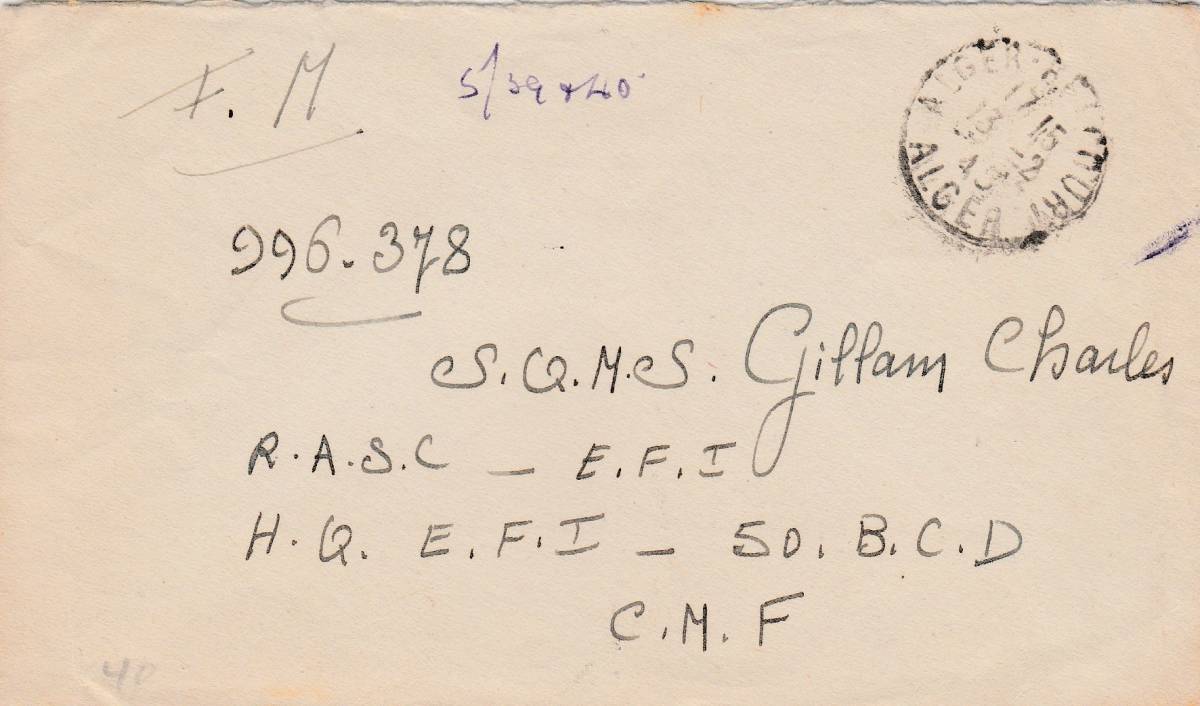 F. M
5/39 & 40
ALGER
ALGER
13
996.378
S.Q.M.S. Gillam Charles
R.A.S.C — E.F.I
H.Q. E.F.I — 50. B.C.D
C.M.F
40